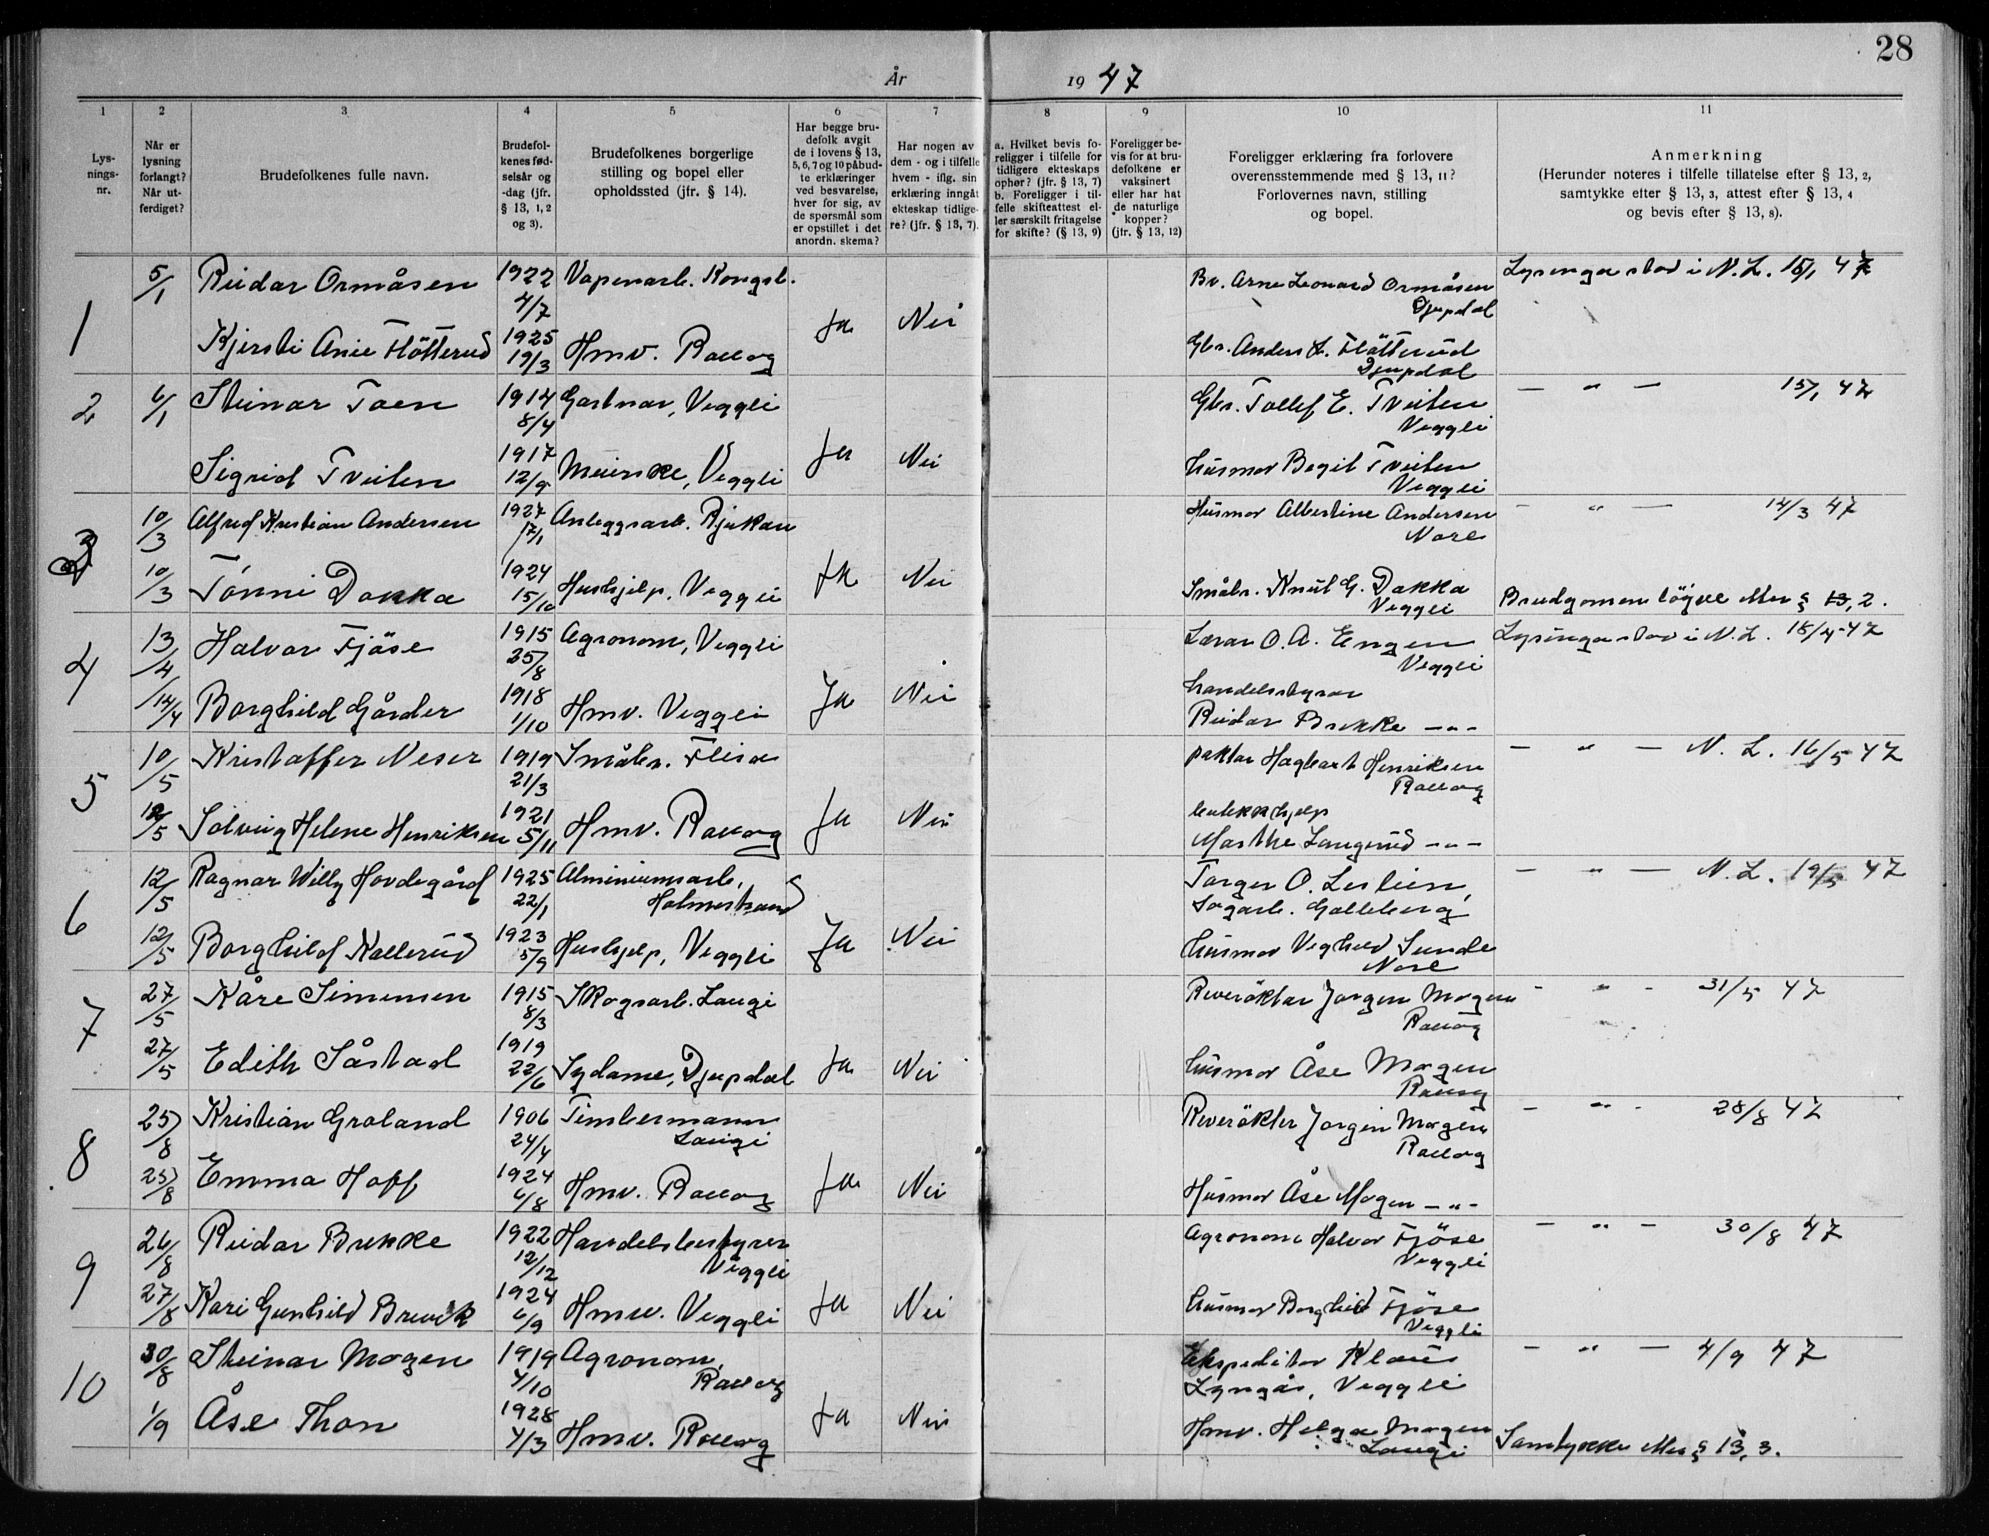 28
År 19 47
1 2 3 4 5 6 7 8 9 10 11
Lys-
nings-
nr.
Når er
lysning
forlangt?
Når ut-
ferdiget?
Brudefolkenes fulle navn.
Brudefol-
kenes fød-
selsår og
-dag (jfr.
§ 13, 1, 2
og 3).
Brudefolkenes borgerlige
stilling og bopel eller
opholdssted (jfr. § 14).
Har begge bru-
defolk avgit
de i lovens § 13,
5, 6, 7 og 10 påbud-
te erklæringer
ved besvarelse,
hver for sig, av
de spørsmål som
er opstillet i det
anordn. skema?
Har nogen av
dem - og i tilfelle
hvem - iflg. sin
erklæring inngåt
ekteskap tidlige-
re? (jfr. § 13, 7).
a. Hvilket bevis fo-
religger i tilfelle for
tidligere ekteskaps
ophør? (jfr. § 13, 7)
b. Foreligger i til-
felle skifteattest el-
ler særskilt fritagelse
for skifte? (§ 13, 9)
Foreligger be-
vis for at bru-
defolkene er
vaksinert
eller har hat
de naturlige
kopper?
(jfr. § 13, 12)
Foreligger erklæring fra forlovere
overensstemmende med § 13, 11?
Forlovernes navn, stilling
og bopel.
Anmerkning
(Herunder noteres i tilfelle tillatelse efter § 13, 2,
samtykke efter § 13, 3, attest efter § 13, 4
og bevis efter § 13, 8).
1 5/1 Reidar Ormåsen 1922 4/7 Vapenarb. Kongsb. Ja Nei Br. Arne Leonard Ormåsen Lysinga stod i N.L. 15/1 47
Djupdal
Kjersti Anie Fløtterud 1925 19/3 Hmv. Rollag Gbr. Anders L. Fløtterud
Djupdal
2 6/1 Steinar Toen 1914 8/4 Gartnar, Veggli Ja Nei Gbr. Tollef E. Tveiten — " — 15/1 47
Veggli
Sigrid Tveiten 1917 12/9 Meierske, Veggli Husmor Begit Tveiten
Veggli
3 10/3 Alfred Kristian Andersen 1927 17/1 Anleggsarb. Rjukan Ja Nei Husmor Albertine Andersen — " — 14/3 47
Nore
10/3 Tónni Dokka 1924 15/10 Hushjelp, Veggli Småbr. Knut G. Dokka
Veggli Brudgomen løyve etter § 13, 2.
4 13/4 Halvor Fjöse 1915 25/8 Agronom, Veggli Ja Nei Lærar O. A. Engen Lysinga stod i N.L. 18/4-47
Veggli
14/4 Borghild Gårder 1918 1/10 Hmv. Veggli Handelsstyrar
Reidar Brekke — " —
5 10/5 Kristoffer Neser 1919 21/3 Småbr. Flisa Ja Nei paktar Hagbart Henriksen — " — N. L. 16/5 47
Rollag
12/5 Solveig Helene Henriksen 1921 5/11 Hmv. Rollag
Marthe Langerud — " —
6 12/5 Ragnar Willy Hovdegård 1925 22/1 Alminiumsarb. Ja Nei Torger O. Lerlien, — " — N. L. 19/5 47
Holmestrand Sagarb. Galleberg
12/5 Borghild Kallerud 1923 5/9 Hushjelp, Veggli Husmor Veghild Sunde
Nore
7 27/5 Kåre Simensen 1915 8/3 Skogsarb. Laugi Ja Nei Reverøktar Jørgen Mogen - " - 31/5 47
Rollag
27/5 Edith Såstad 1919 22/6 Sydame, Djupdal Husmor Åse Mogen
Rollag
8 25/8 Kristian Groland 1906 24/4 Timbermann Ja Nei Reverøkter Jørgen Mogen — " - 28/8 47
Laugi Rollag
25/8 Emma Hoff 1924 6/8 Hmv. Rollag Husmor Åse Mogen — " -
9 26/8 Reidar Brekke 1922 12/12 Handelsbestyrer Ja Nei Agronom Halvor Fjöse — " — 30/8 47
Veggli Veggli
27/8 Kari Gunhild Brevik 1924 6/9 Hmv. Veggli Husmor Borghild Fjöse
Veggli
10 30/8 Steinar Mogen 1919 4/10 Agronom, Ja Nei Ekspeditør Klaus — " — 4/9 47
Rollag Lyngås, Veggli
1/9 Åse Thon 1928 4/3 Hmv. Rollag Hmv. Helga Mogen
Laugi Samtykke etter § 13, 3.